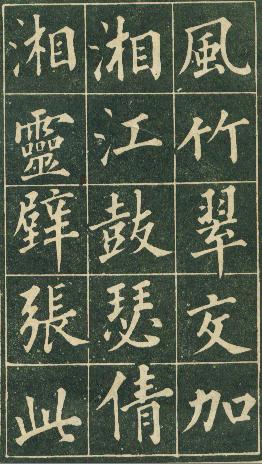 風竹翠交加
湘江鼓瑟倩
湘靈壁張此